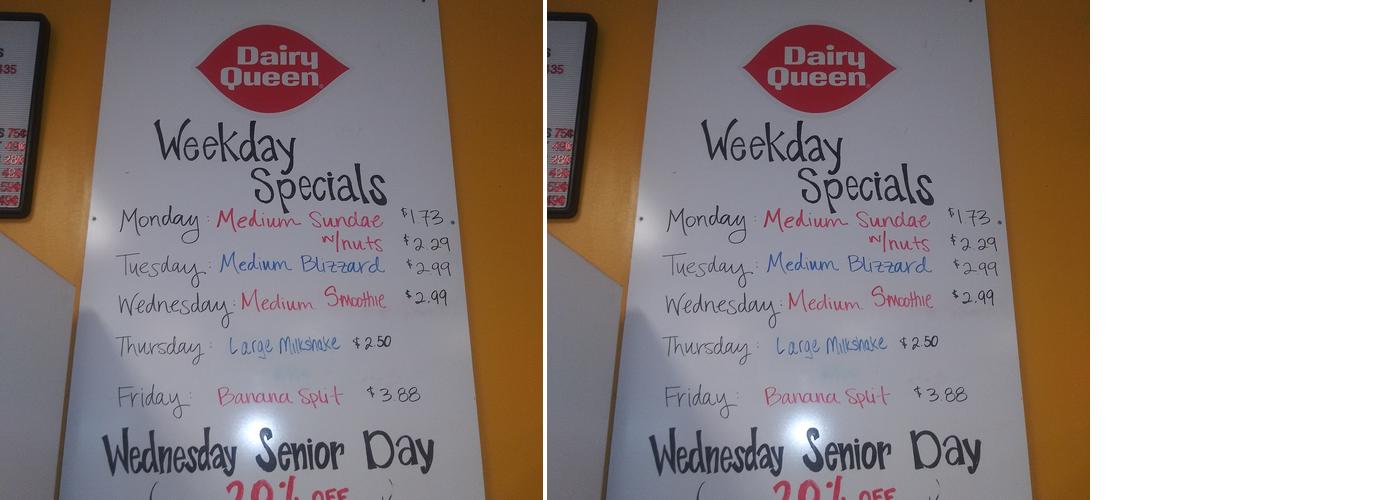 Dairy
Queen
Weekday
Specials
Monday: Medium Sundae $173
w/nuts $2.29
Tuesday: Medium Blizzard $299
Wednesday: Medium Smoothie $2.99
Thursday: Large Milkshake $2.50
Friday: Banana Split $3.88
Wednesday Senior Day
20% OFF
75¢
49¢
28¢
49¢
Dairy
Queen
Weekday
Specials
Monday: Medium Sundae $173
w/nuts $2.29
Tuesday: Medium Blizzard $299
Wednesday: Medium Smoothie $2.99
Thursday: Large Milkshake $2.50
Friday: Banana Split $3.88
Wednesday Senior Day
20% OFF
75¢
49¢
28¢
49¢